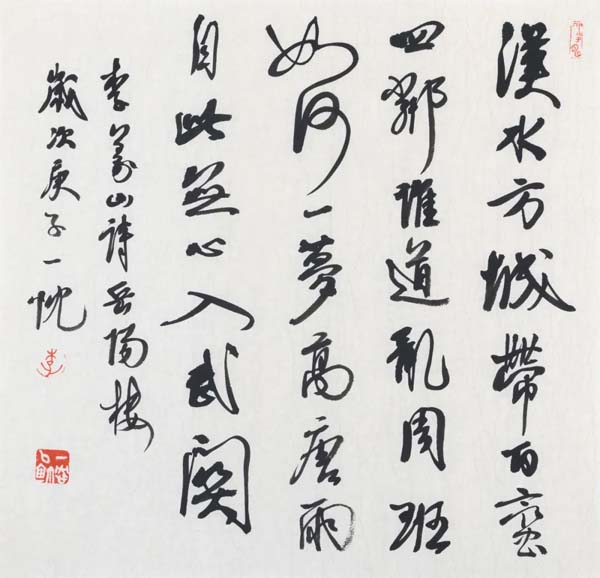 漢水方城帶百蠻
四鄰誰道亂周班
如何一夢高唐雨
自此無心入武關
李義山詩岳陽樓
歲次庚子一忱
李